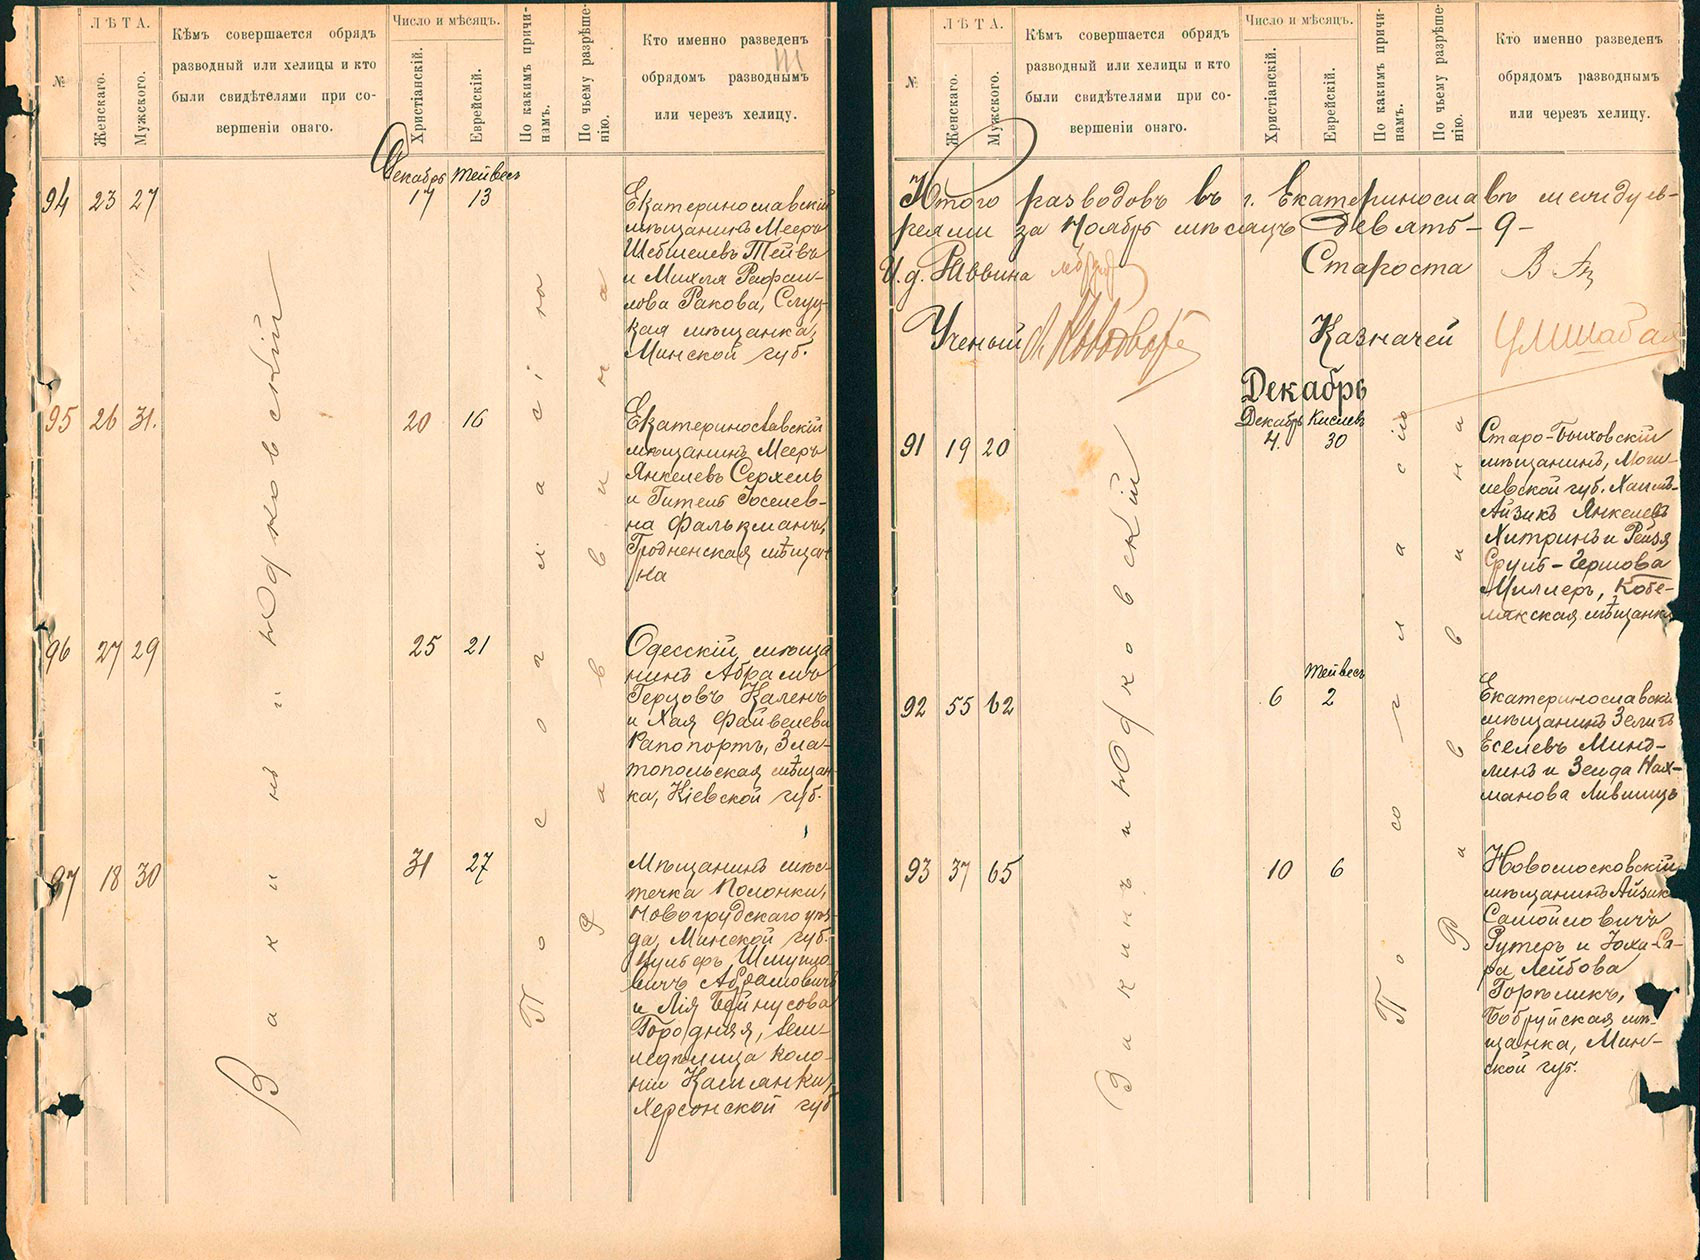 №
ЛѢТА.
Женскаго.
Мужского.
Кѣмъ совершается обрядъ
разводный или хелицы и кто
были свидѣтелями при со-
вершеніи онаго.
Число и мѣсяцъ.
Христіанскій.
Еврейскій.
По какимъ причи-
намъ.
По чьему разрѣше-
нію.
Кто именно разведенъ
обрядомъ разводнымъ
или черезъ хелицу.
Декабрь Тейвесъ
94 23 27 17 13
Екатеринославскій
мѣщанинъ Мееръ
и Михля Рафаи-
лова Ракова, Слуц-
кая мѣщанка,
Минской губ.
95 26 31. 20 16
Екатеринославскій
мѣщанинъ Мееръ
Янкелевъ Серхель
и Гитель Іоселев-
на Фалькманъ,
Гродненская мѣщан-
ка
96 27 29 25 21
Одесскій мѣща
нинъ Абрамъ
Герцовъ Каленъ
и Хая Файвелева
Рапопортъ, Зла-
топольская мѣщан-
ка, Кіевской губ.
97 18 30 31 27
Мѣщанинъ мѣс-
течка Полонки,
Новогрудскаго уѣз-
да, Минской губ.
Вульфъ Шмуило
вичъ Абрамовичъ
и Лія Бейнусова
Городняя, зем-
ледѣлица коло-
ніи Камянки,
Херсонской губ
Вакинъ и Юфковскій
По согласію
Раввина
№
ЛѢТА.
Женскаго.
Мужского.
Кѣмъ совершается обрядъ
разводный или хелицы и кто
были свидѣтелями при со-
вершеніи онаго.
Число и мѣсяцъ.
Христіанскій.
Еврейскій.
По какимъ причи-
намъ.
По чьему разрѣше-
нію.
Кто именно разведенъ
обрядомъ разводнымъ
или черезъ хелицу.
Итого разводовъ въ г. Екатеринославѣ между ев-
реями за Ноябрь мѣсяцъ Девять - 9 -
И. д. Раввина Староста
Ученый Казначей
Декабрь
Декабрь Кислевъ
91 19 20 4. 30
Старо-Быховскій
мѣщанинъ, Моги-
левской губ. Хаимъ-
Айзикъ Янкелевъ
Хитринъ и Рейзя
Сруль-Гершова
Миллеръ, Кобе-
лякская мѣщанка
Тейвесъ
92 55 62 6 2
Екатеринославскій
мѣщанинъ Зеликъ
Еселевъ Минд-
линъ и Зелда Нах-
манова Лившицъ
93 37 65 10 6
Новомосковскій
мѣщанинъ Айзик
Самойловичъ
Рутеръ и Іоха-Са-
ра Лейбова
Горѣликъ,
Бобруйская мѣ-
щанка, Мин-
ской губ.
Вакинъ и Юфковскій
По согласію
Раввина